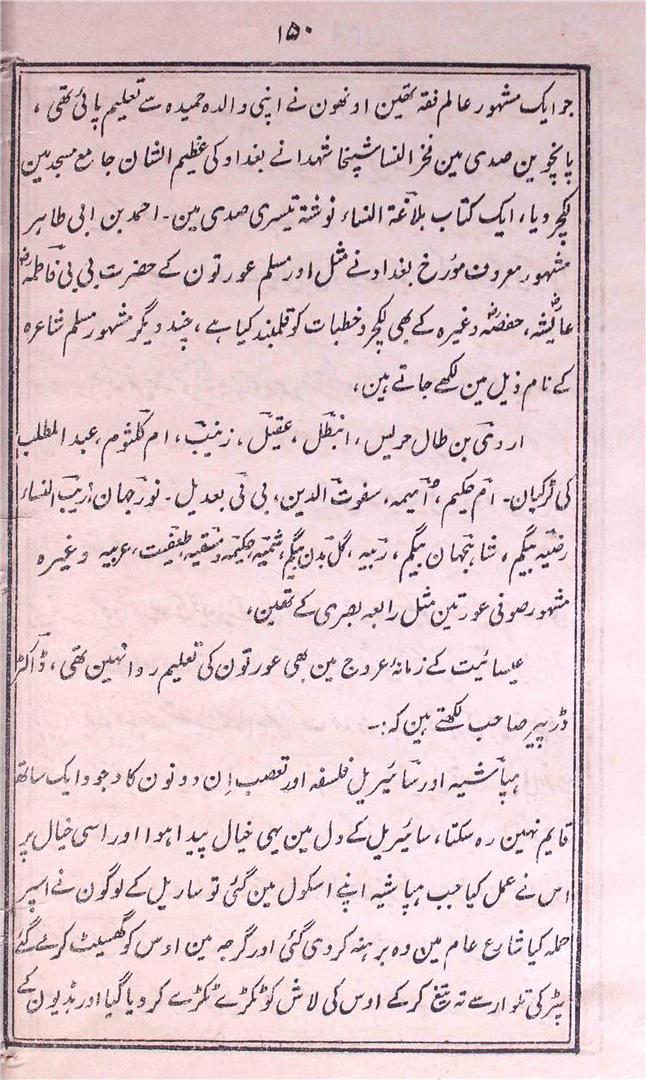 ۱۵۰
جو ایک مشہور عالم فقہ تھین اونھون نے اپنی والدہ حمیدہ سے تعلیم پائی تھی ،
پانچوین صدی مین فخر النسا شیخا شہدا نے بغداد کی عظیم الشان جامع مسجد مین
لکچر دیا، ایک کتاب بلاغۃ النساء نوشتۂ تیسری صدی مین۔ احمد بن ابی طاہر
مشہور معروف مؤرخ بغداد نے مثل اور مسلم عورتون کے حضرت بی بی فاطمہؓ
عائیشہؓ، حفصہؓ وغیرہ کے بھی لکچر و خطبات کو قلمبند کیا ہے ، چند دیگر مشہور مسلم شاعرہ
کے نام ذیل مین لکھے جاتے ہین،
اردی بن طال حریس، انبطل، عقیل، زینب، ام کلثوم، عبد المطلب
کی لڑکیان۔ ام حکیم، امیمہ، سفوت الدین، بی بی بعدیل۔ نور جہان، زیب النساء
رضیہ بیگم ، شاہجہان بیگم ، زبیہ ، گل بدن بیگم، شمیہ، حکیمہ دمشقیہ، عربیہ وغیرہ
مشہور صوفی عورتین مثل رابعہ بصری کے تھین،
عیسائیت کے زمانۂ عروج مین بھی عورتون کی تعلیم روا نہین تھی ، ڈاکٹر
ڈریپر صاحب لکھتے ہین کہ:۔
ہپاشیہ اور سائیریل فلسفہ اور تعصب اِن دونون کا وجود ایک ساتھ
قایم نہین رہ سکتا، سائیریل کے دل مین یہی خیال پیدا ہوا اور اسی خیال پر
اس نے عمل کیا جب ہپاشیہ اپنے اسکول مین گئی تو ساریل کے لوگون نے اسپر
حملہ کیا شارع عام مین وہ برہنہ کر دی گئی اور گرجہ مین اوس کو گھسیٹ کر لے گئے
پیٹر کی تلوار سے تہ تیغ کر کے اوس کی لاش کو ٹکڑے ٹکڑے کر دیا گیا اور ہڈیون کے